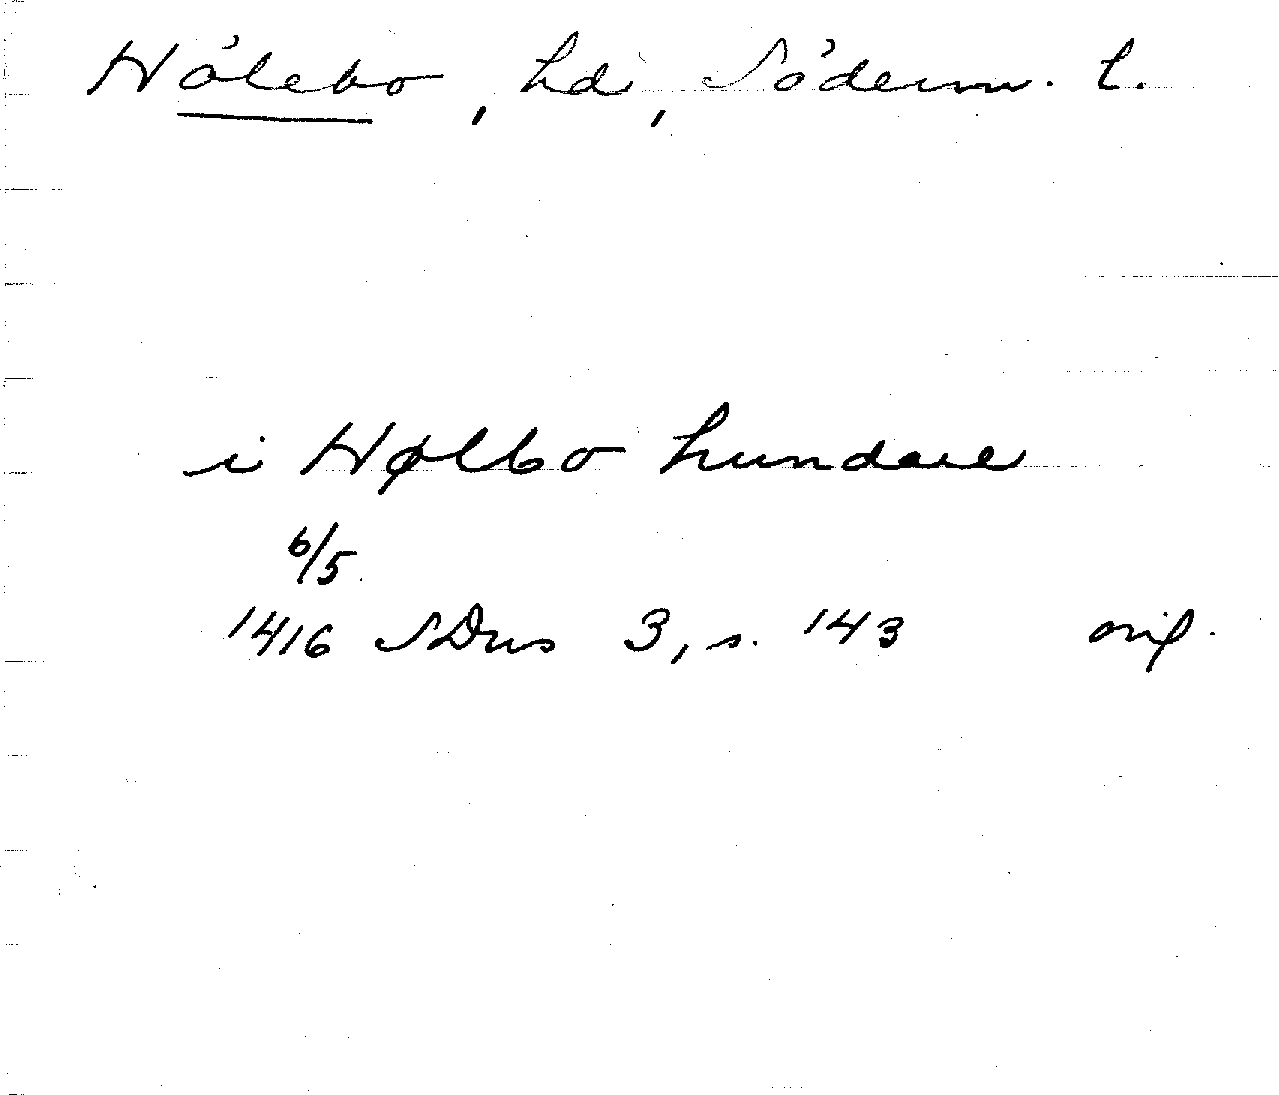 Hölebo, hd, Söderm. l.
i Hølbo hundare
6/5
1416 SDns 3, s. 143 orig.